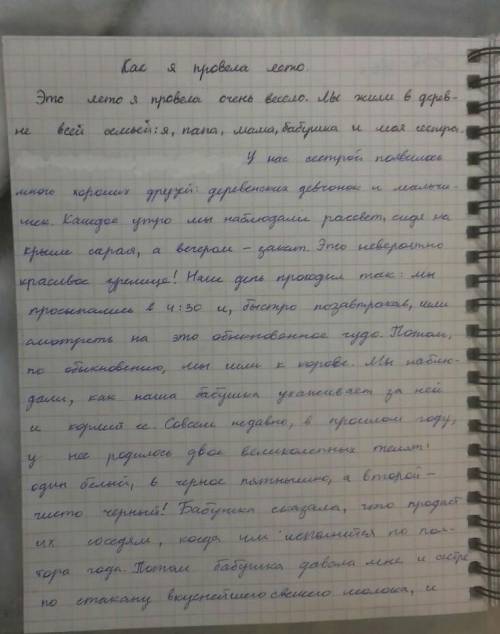 Как я провела лето
Это лето я провела очень весело. Мы жили в дерев-
не всей семьёй: я, папа, мама, бабушка и моя сестра.
У нас сестрой появилось
много хороших друзей: деревенских девчонок и мальчи-
шек. Каждое утро мы наблюдали рассвет, сидя на
крыше сарая, а вечером – закат. Это невероятно
красивое зрелище! Наш день проходил так: мы
просыпались в 4:30 и, быстро позавтракав, шли
смотреть на это обыкновенное чудо. Потом,
по обыкновению, мы шли к корове. Мы наблю-
дали, как наша бабушка ухаживает за ней
и кормит ее. Совсем недавно, в прошлом году,
у нее родилось двое великолепных телят:
один белый, в черное пятнышко, а второй –
чисто черный! Бабушка сказала, что продаст
их соседям, когда им исполнится по пол-
тора года. Потом бабушка давала мне и сестре
по стакану вкуснейшего свежего молока, и